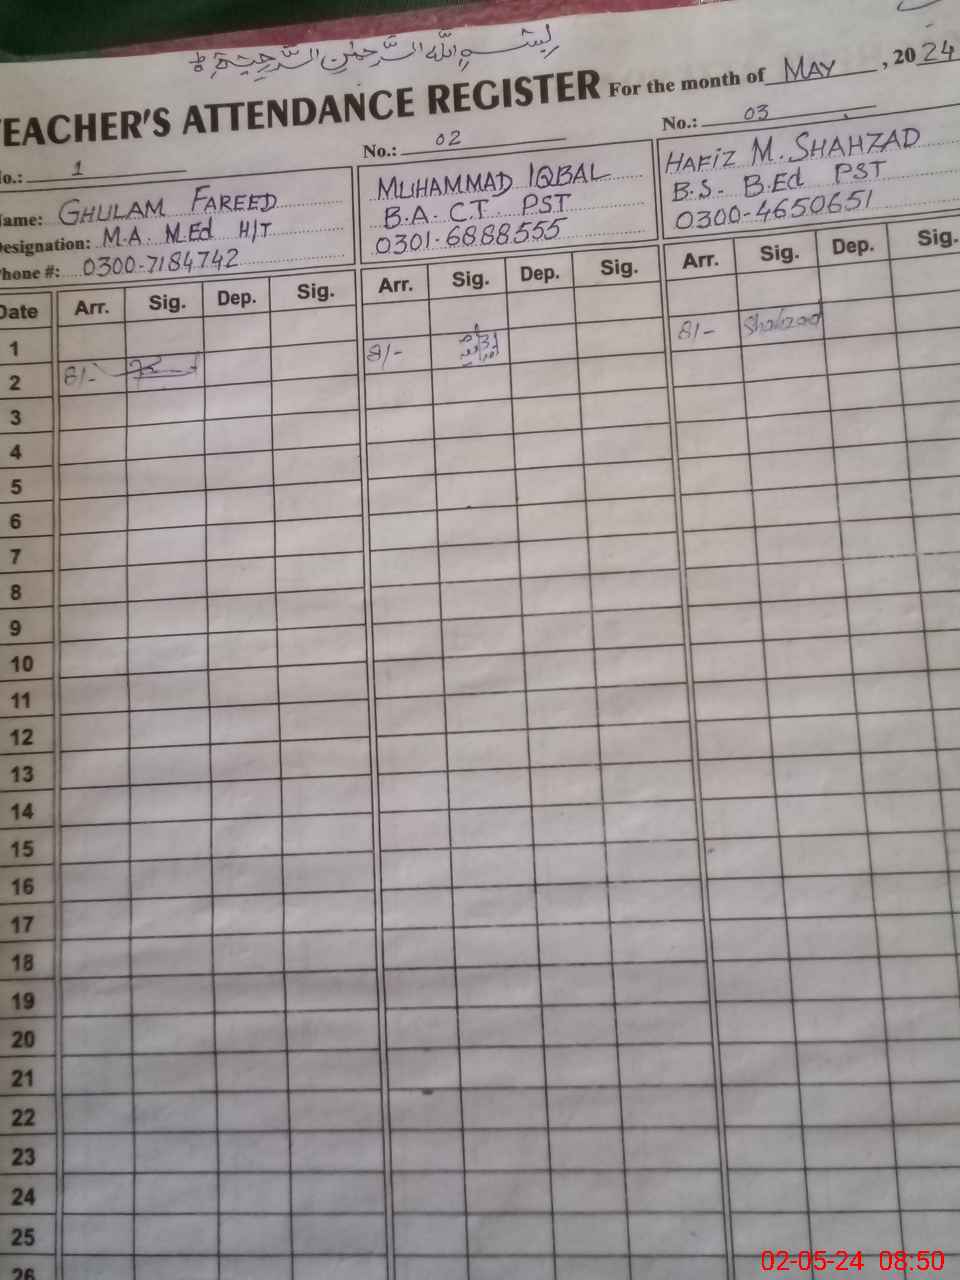 بِسْمِ اللّٰهِ الرَّحْمٰنِ الرَّحِيْمِ ط
TEACHER'S ATTENDANCE REGISTER For the month of MAY, 2024
No.: 1
Name: GHULAM FAREED
Designation: M.A. M.Ed H/T
Phone #: 0300-7184742
No.: 02
MUHAMMAD IQBAL
B.A. C.T. PST
0301-6888555
No.: 03
HAFIZ M. SHAHZAD
B.S. B.Ed PST
0300-4650651
Date Arr. Sig. Dep. Sig. Arr. Sig. Dep. Sig. Arr. Sig. Dep. Sig.
1
2 8/- 8/- 8/- Shahzad
3
4
5
6
7
8
9
10
11
12
13
14
15
16
17
18
19
20
21
22
23
24
25
26
02-05-24 08:50